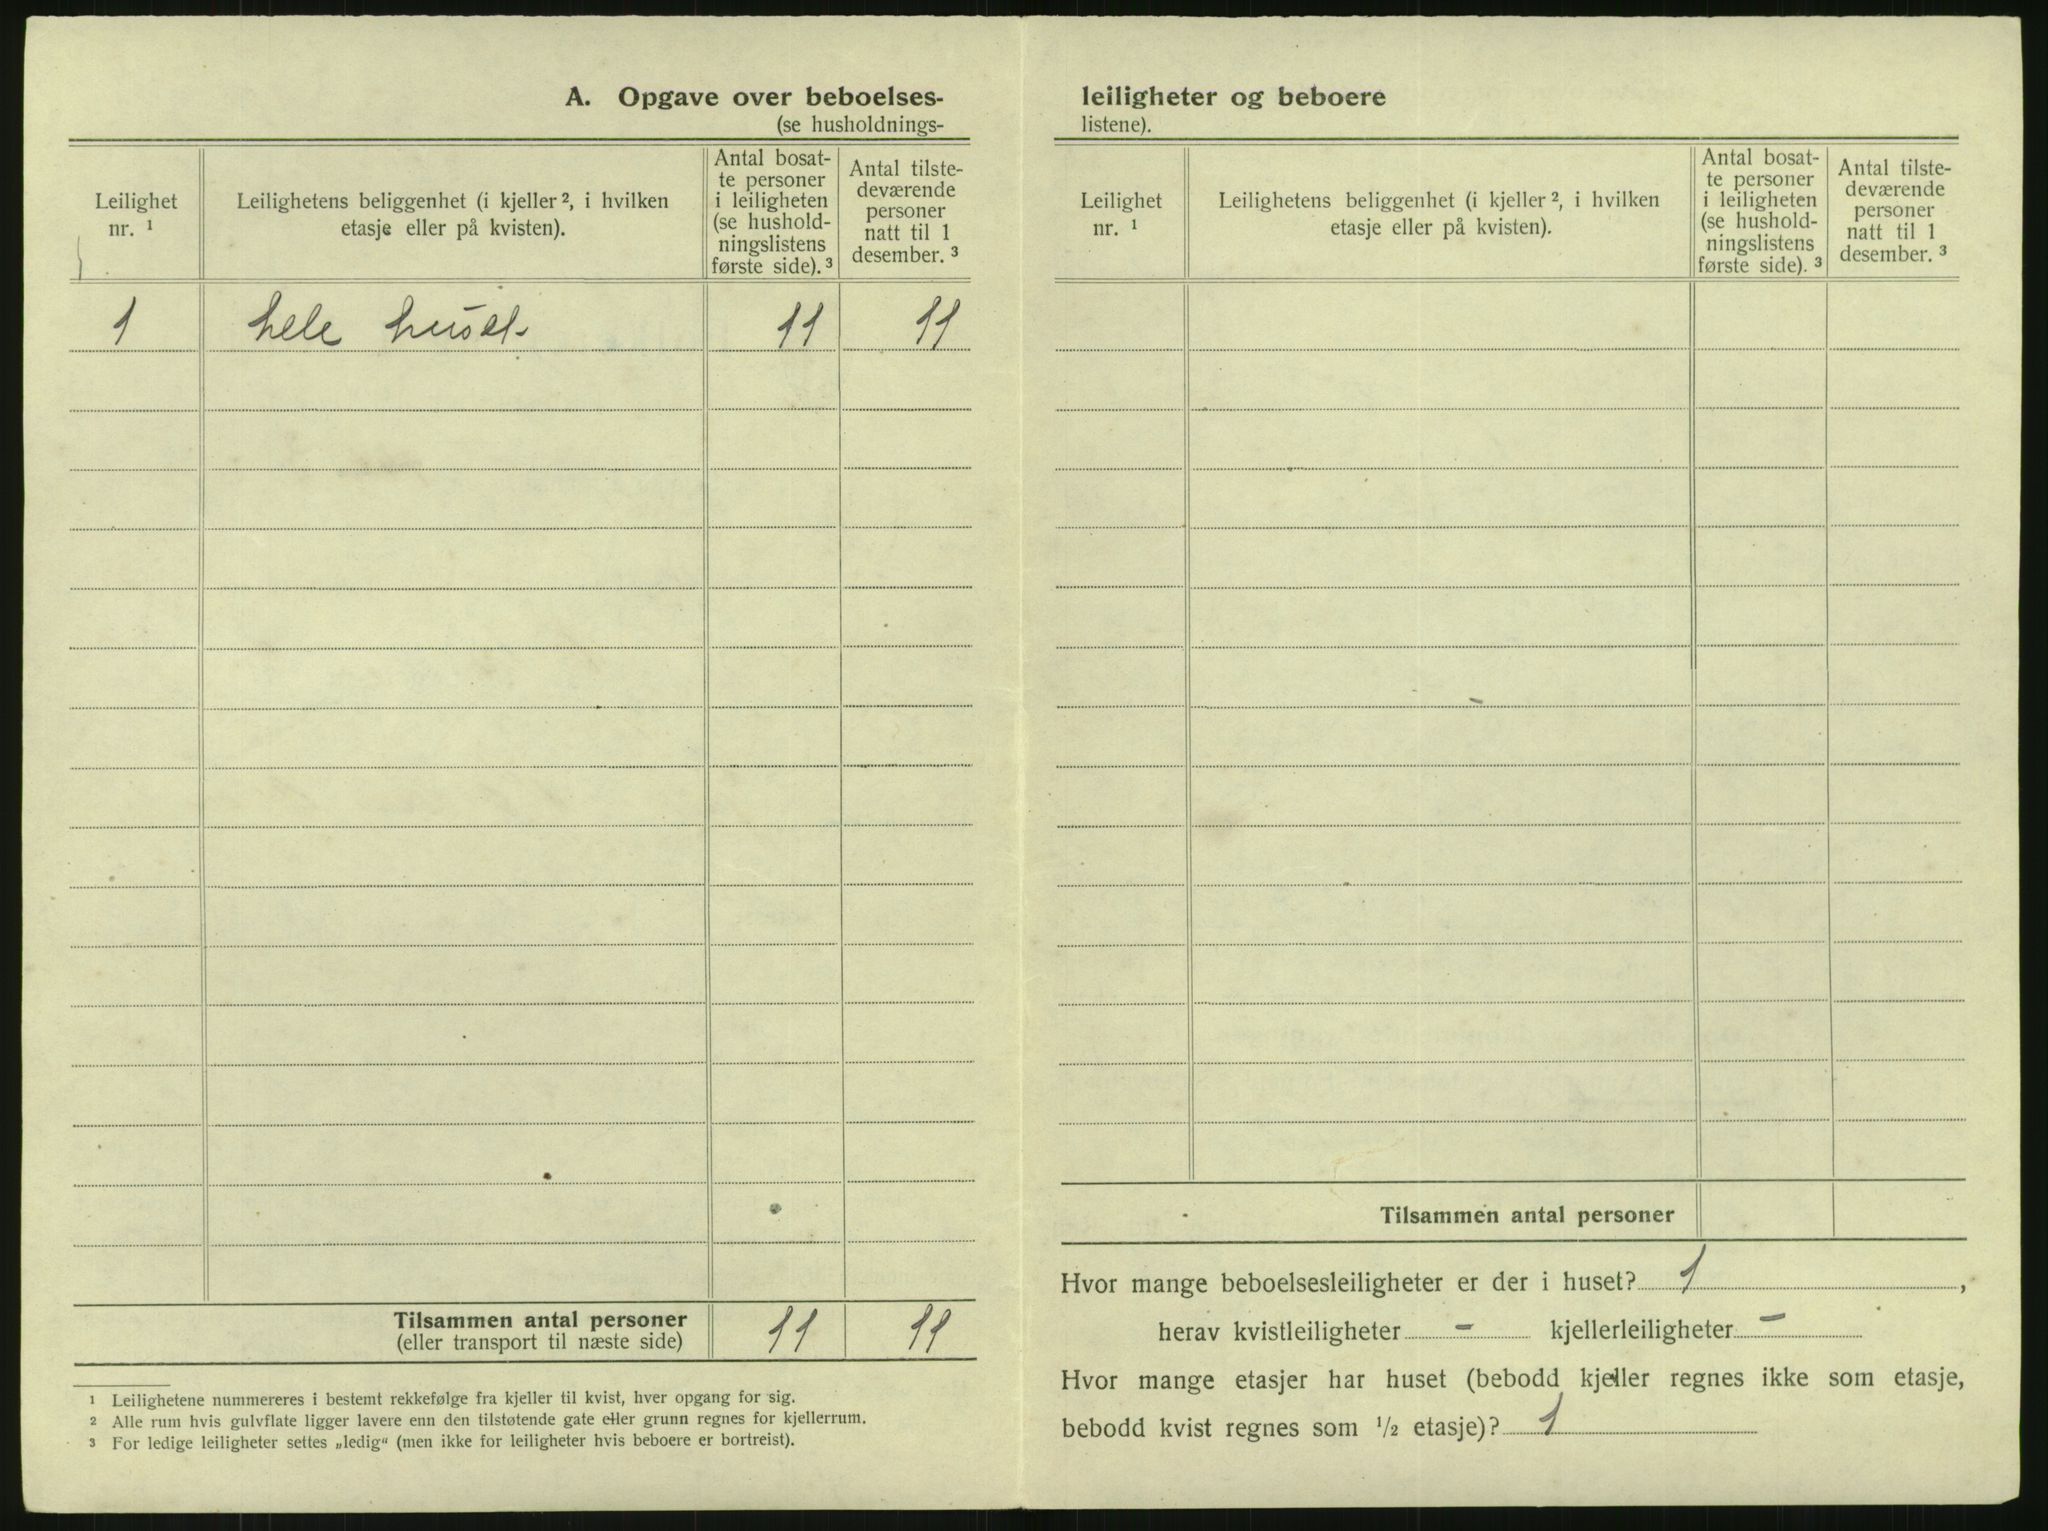 A. Opgave over beboelses-
(se husholdnings-
Leilighet
nr. ¹
Leilighetens beliggenhet (i kjeller ², i hvilken
etasje eller på kvisten).
Antal bosat-
te personer
i leiligheten
(se hushold-
ningslistens
første side). ³
Antal tilste-
deværende
personer
natt til 1
desember. ³
1 hele huset 11 11
Tilsammen antal personer 11 11
(eller transport til næste side)
¹ Leilighetene nummereres i bestemt rekkefølge fra kjeller til kvist, hver opgang for sig.
² Alle rum hvis gulvflate ligger lavere enn den tilstøtende gate eller grunn regnes for kjellerrum.
³ For ledige leiligheter settes „ledig“ (men ikke for leiligheter hvis beboere er bortreist).
leiligheter og beboere
listene).
Leilighet
nr. ¹
Leilighetens beliggenhet (i kjeller ², i hvilken
etasje eller på kvisten).
Antal bosat-
te personer
i leiligheten
(se hushold-
ningslistens
første side). ³
Antal tilste-
deværende
personer
natt til 1
desember. ³
Tilsammen antal personer
Hvor mange beboelsesleiligheter er der i huset? 1,
herav kvistleiligheter - kjellerleiligheter -
Hvor mange etasjer har huset (bebodd kjeller regnes ikke som etasje,
bebodd kvist regnes som ½ etasje)? 1